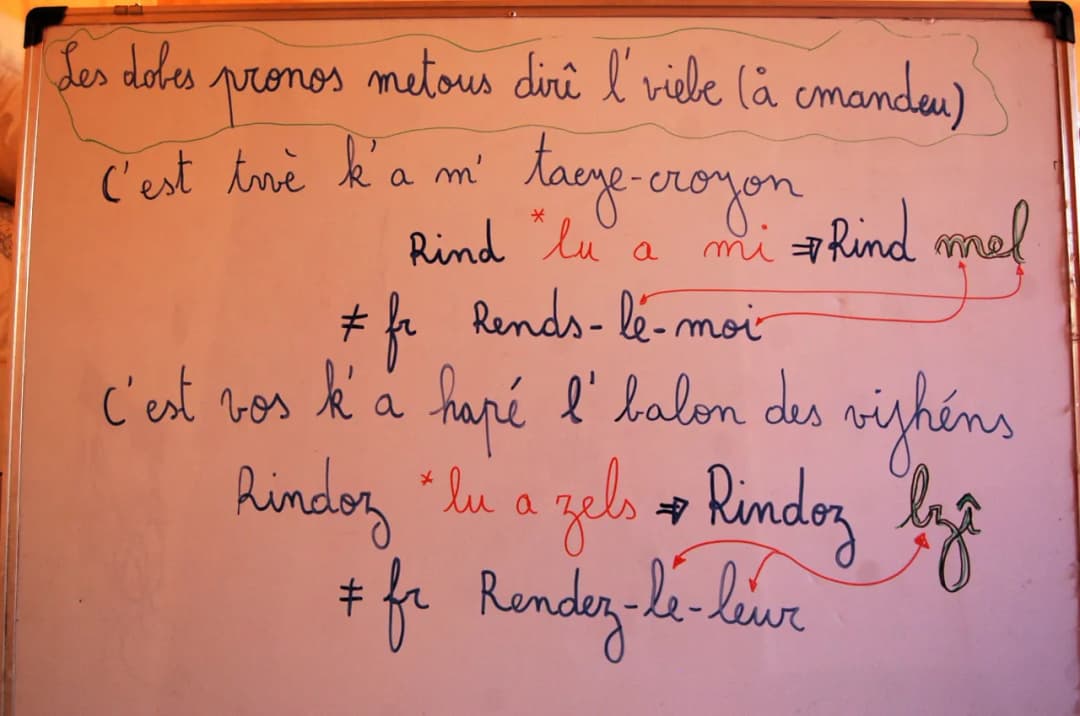 Les dobes pronos metous dirî l' viebe (å cmandeu)
C'est twè k'a m' taeye-croyon
Rind *lu a mi ⇒ Rind mel
≠ fr Rends-le-moi
C'est vos k'a hapé l' balon des vijhéns
Rindoz *lu a zels ⇒ Rindoz lzî
≠ fr Rendez-le-leur